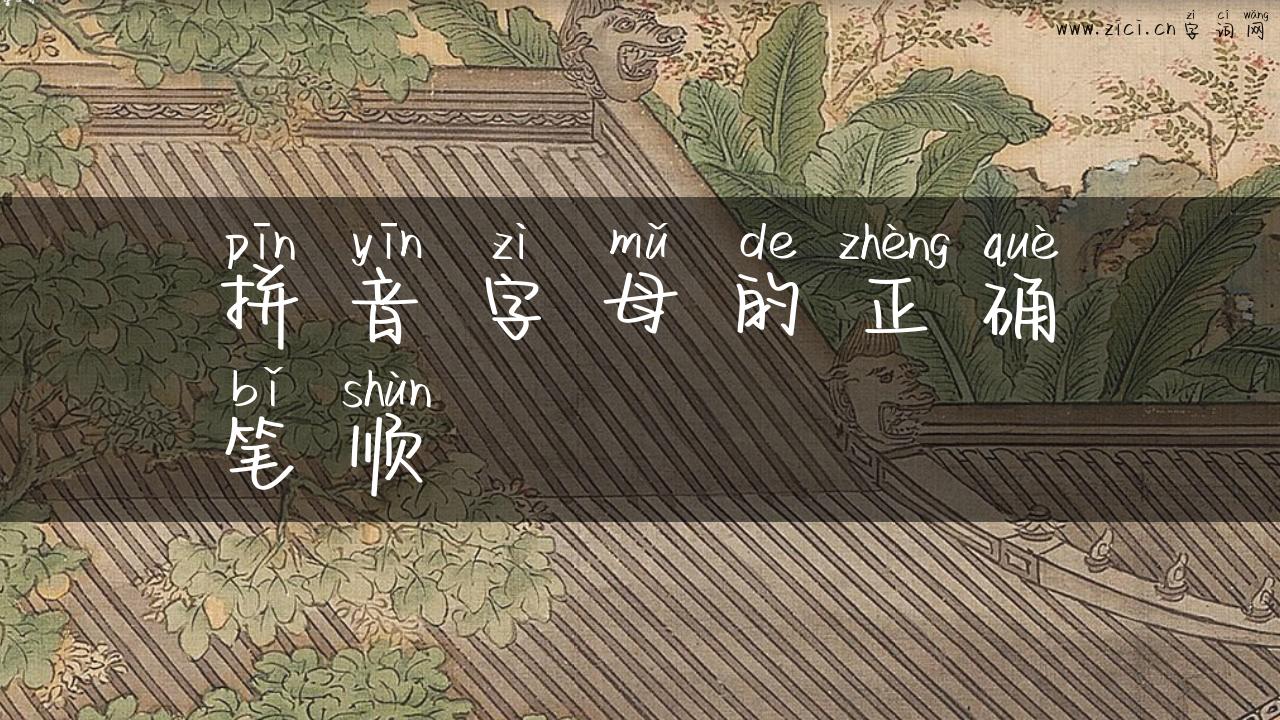 zì cí wǎng
www.zici.cn 字 词 网
pīn yīn zì mǔ de zhèng què
拼 音 字 母 的 正 确
bǐ shùn
笔 顺